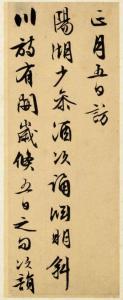 正月五日訪
陽湖少參酒次誦淵明斜
川詩有開歲倏五日之句次韻